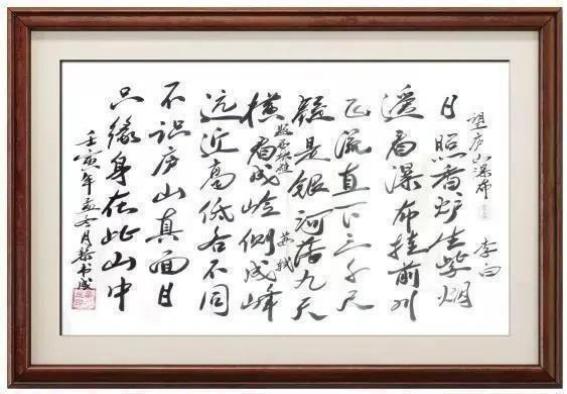 望庐山瀑布 李白
日照香炉生紫烟
遥看瀑布挂前川
飞流直下三千尺
疑是银河落九天
题西林壁 苏轼
横看成岭侧成峰
远近高低各不同
不识庐山真面目
只缘身在此山中
壬寅年孟冬月